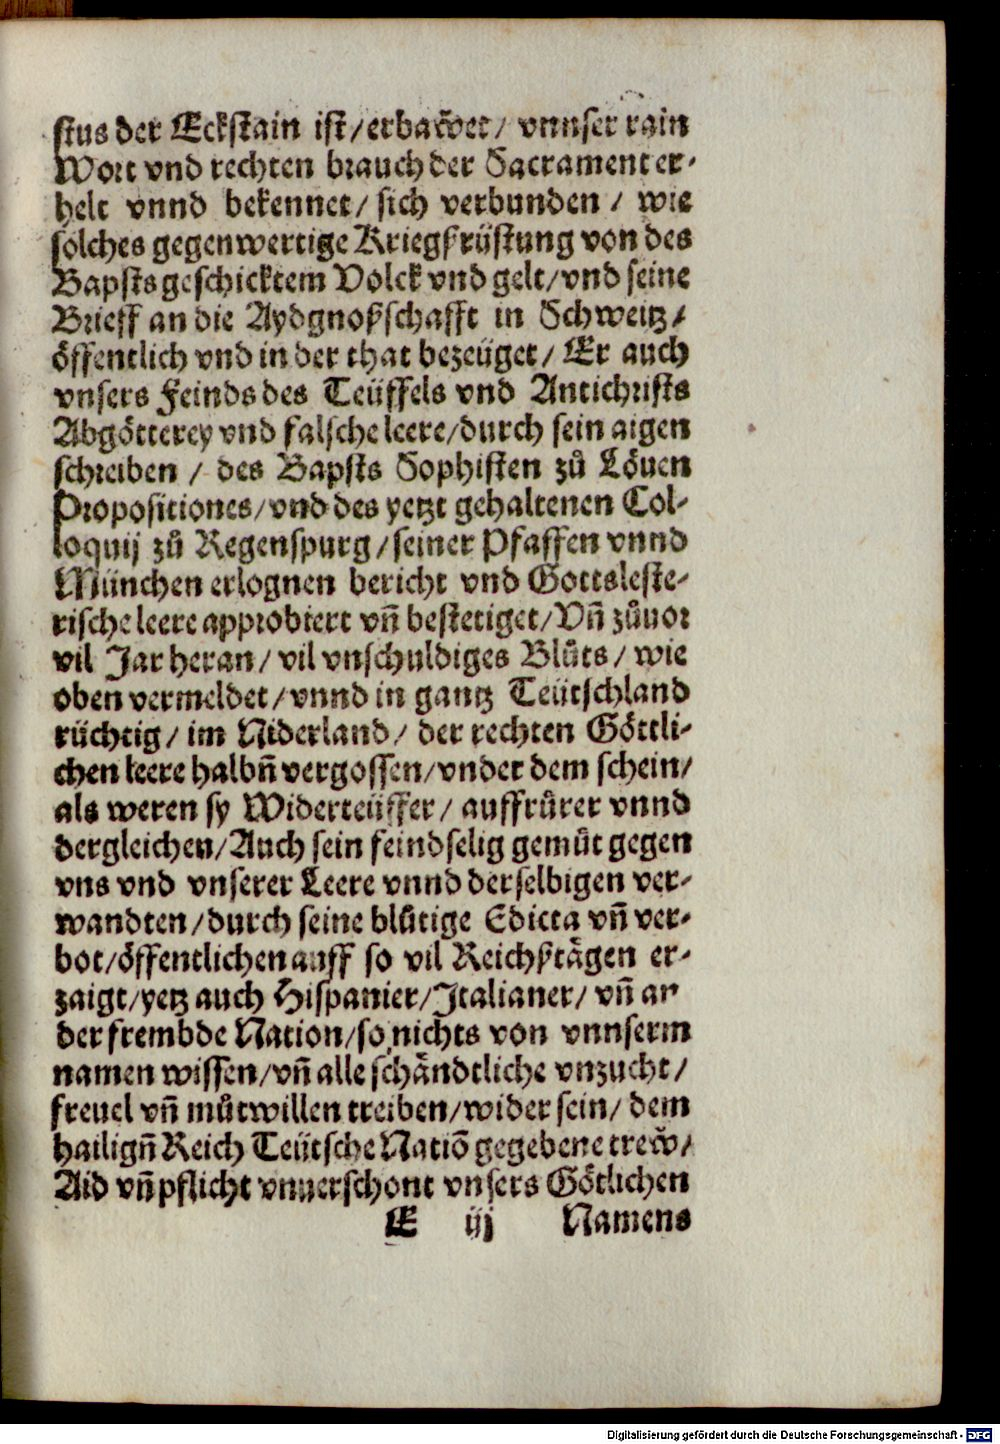 stus der Eckstain ist/erbaw̃et/ vnnser rain
Wort vnd rechten brauch der Sacrament er-
helt vnnd bekennet/ sich verbunden / wie
solches gegenwertige Kriegßrüstung von des
Bapsts geschicktem Volck vnd gelt/vnd seine
Brieff an die Aydgnoßschafft in Schweitz/
öffentlich vnd in der that bezeüget/ Er auch
vnsers Feinds des Teüffels vnd Antichrists
Abgötterey vnd falsche leere/durch sein aigen
schreiben / des Bapsts Sophisten zů Löuen
Propositiones/vnd des yetzt gehaltenen Col-
loquij zů Regenspurg/seiner Pfaffen vnnd
München erlognen bericht vnd Gottsleste-
rische leere approbiert vñ bestetiget/Vñ zůuor
vil Jar heran/ vil vnschuldiges Blůts/ wie
oben vermeldet/vnnd in gantz Teütschland
rüchtig/ im Niderland/ der rechten Göttli-
chen leere halbñ vergossen/vnder dem schein/
als weren sy Widerteüffer/ auffrůrer vnnd
dergleichen/Auch sein feindselig gemůt gegen
vns vnd vnserer Leere vnnd derselbigen ver-
wandten/durch seine blůtige Edicta vñ ver-
bot/öffentlichen auff so vil Reichßtägen er-
zaigt/yetz auch Hispanier/Italianer/ vñ an
der frembde Nation/so nichts von vnnserm
namen wissen/vñ alle schändtliche vnzucht/
freuel vñ můtwillen treiben/wider sein/ dem
hailigñ Reich Teütsche Natiõ gegebene trew̃/
Aid vñ pflicht vnuerschont vnsers Götlichen
E iij Namens
Digitalisierung gefördert durch die Deutsche Forschungsgemeinschaft - DFG